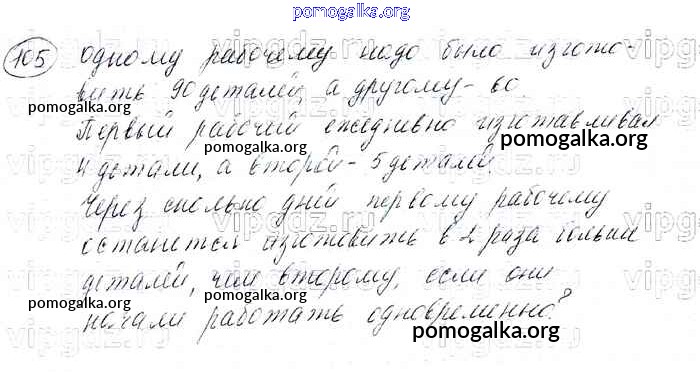 pomogalka.org
105 Одному рабочему надо было изгото-
вить 90 деталей, а другому - 60.
pomogalka.org
pomogalka.org
Первый рабочий ежедневно изготавливал
pomogalka.org
4 детали, а второй - 5 деталей.
pomogalka.org
Через сколько дней первому рабочему
останется изготовить в 2 раза больше
деталей, чем второму, если они
pomogalka.org
pomogalka.org
начали работать одновременно?
pomogalka.org